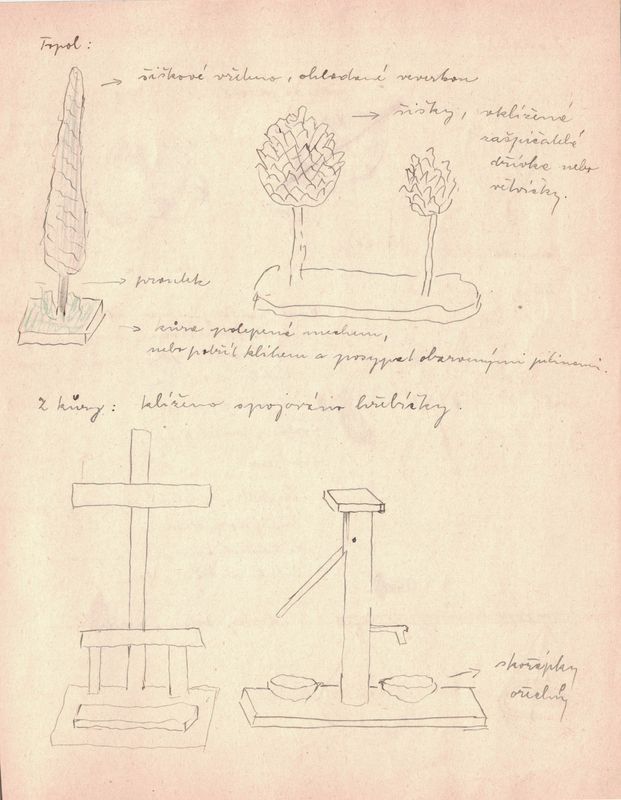 Topol:
šiškové vřeteno, ohlodané veverkou
šišky, vklížené
zašpičatělé
dřívko nebo
větvičky.
proutek
kůra polepená mechem,
nebo potřít klihem a posypat obarvenými pilinami.
Z kůry: klíženo spojováno hřebíčky.
skořápky
ořechů